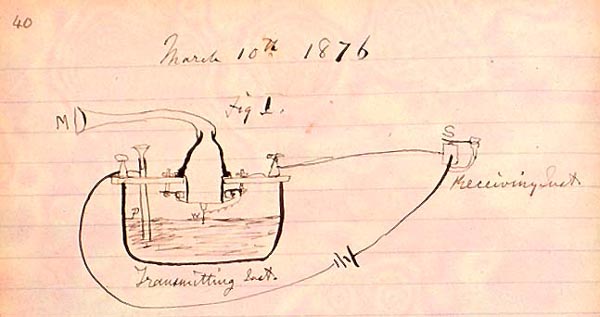 40
March 10th 1876
Fig 1.
M
S
Receiving Inst.
P
W
Transmitting Inst.